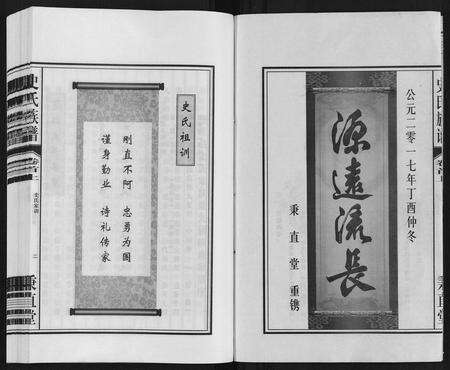 公元二零一七年丁酉仲冬
源遠流長
秉直堂 重镌
史氏祖训
刚直不阿 忠勇为国
谨身勤业 诗礼传家
史氏族譜
卷首
二
秉直堂
史氏族譜
卷首
秉直堂